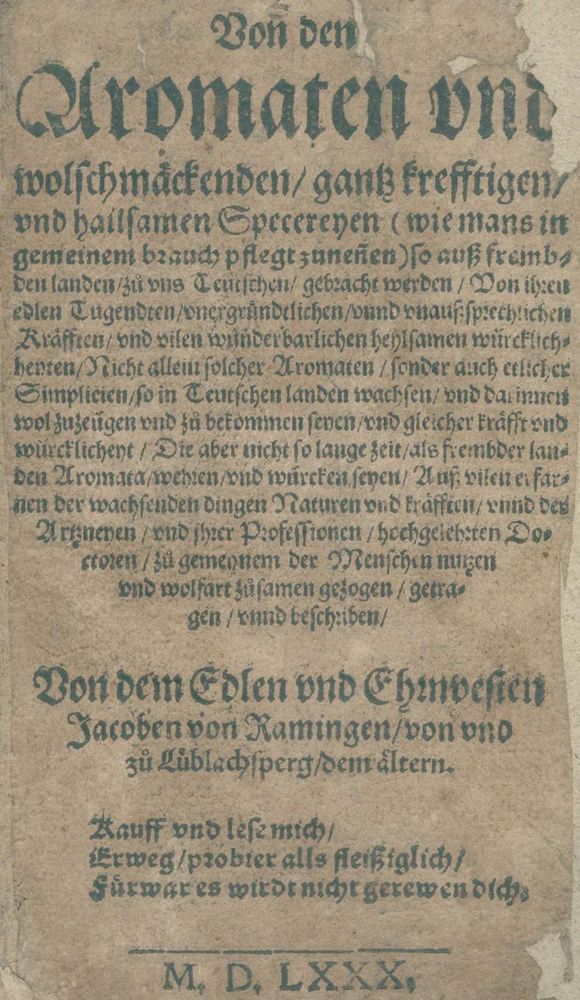 Von̄ den
Aromaten vnd
wolschmäckenden/ gantz krefftigen/
vnd hailsamen Specereyen (wie mans in
gemeinem brauch pflegt zuneñen) so auß fremb⸗
den landen/zů vns Teutschen/ gebracht werden / Von ihren
edlen Tugendten/vnergründtlichen/vnnd vnaußsprechlichen
Kräfften/ vnd vilen wunderbarlichen heylsamen würcklich⸗
heyten/Nicht allein solcher Aromaten / sonder auch etlicher
Simplicien/so in Teutschen landen wachsen/ vnd darinnen
wol zuzeügen vnd zů bekommen seyen/vnd gleicher kräfft vnd
würcklicheyt / Die aber nicht so lange zeit/als frembder lan⸗
den Aromata/wehren/vnd würcken seyen/ Auß vilen erfar⸗
nen der wachsenden dingen Naturen vnd kräfften/ vnnd der
Artzneyen / vnd jhrer Professionen / hochgelehrten Do⸗
ctoren / zů gemeynem der Menschen nutzen
vnd wolfart zůsamen gezogen / getra⸗
gen / vnnd beschriben/
Von dem Edlen vnd Ehrnvesten
Jacoben von Ramingen/von vnd
zů Lüblachsperg/dem ältern.
Kauff vnd lese mich/
Erweg/probier alls fleißiglich/
Fürwar es wirdt nicht gerewen dich.
M. D. LXXX.